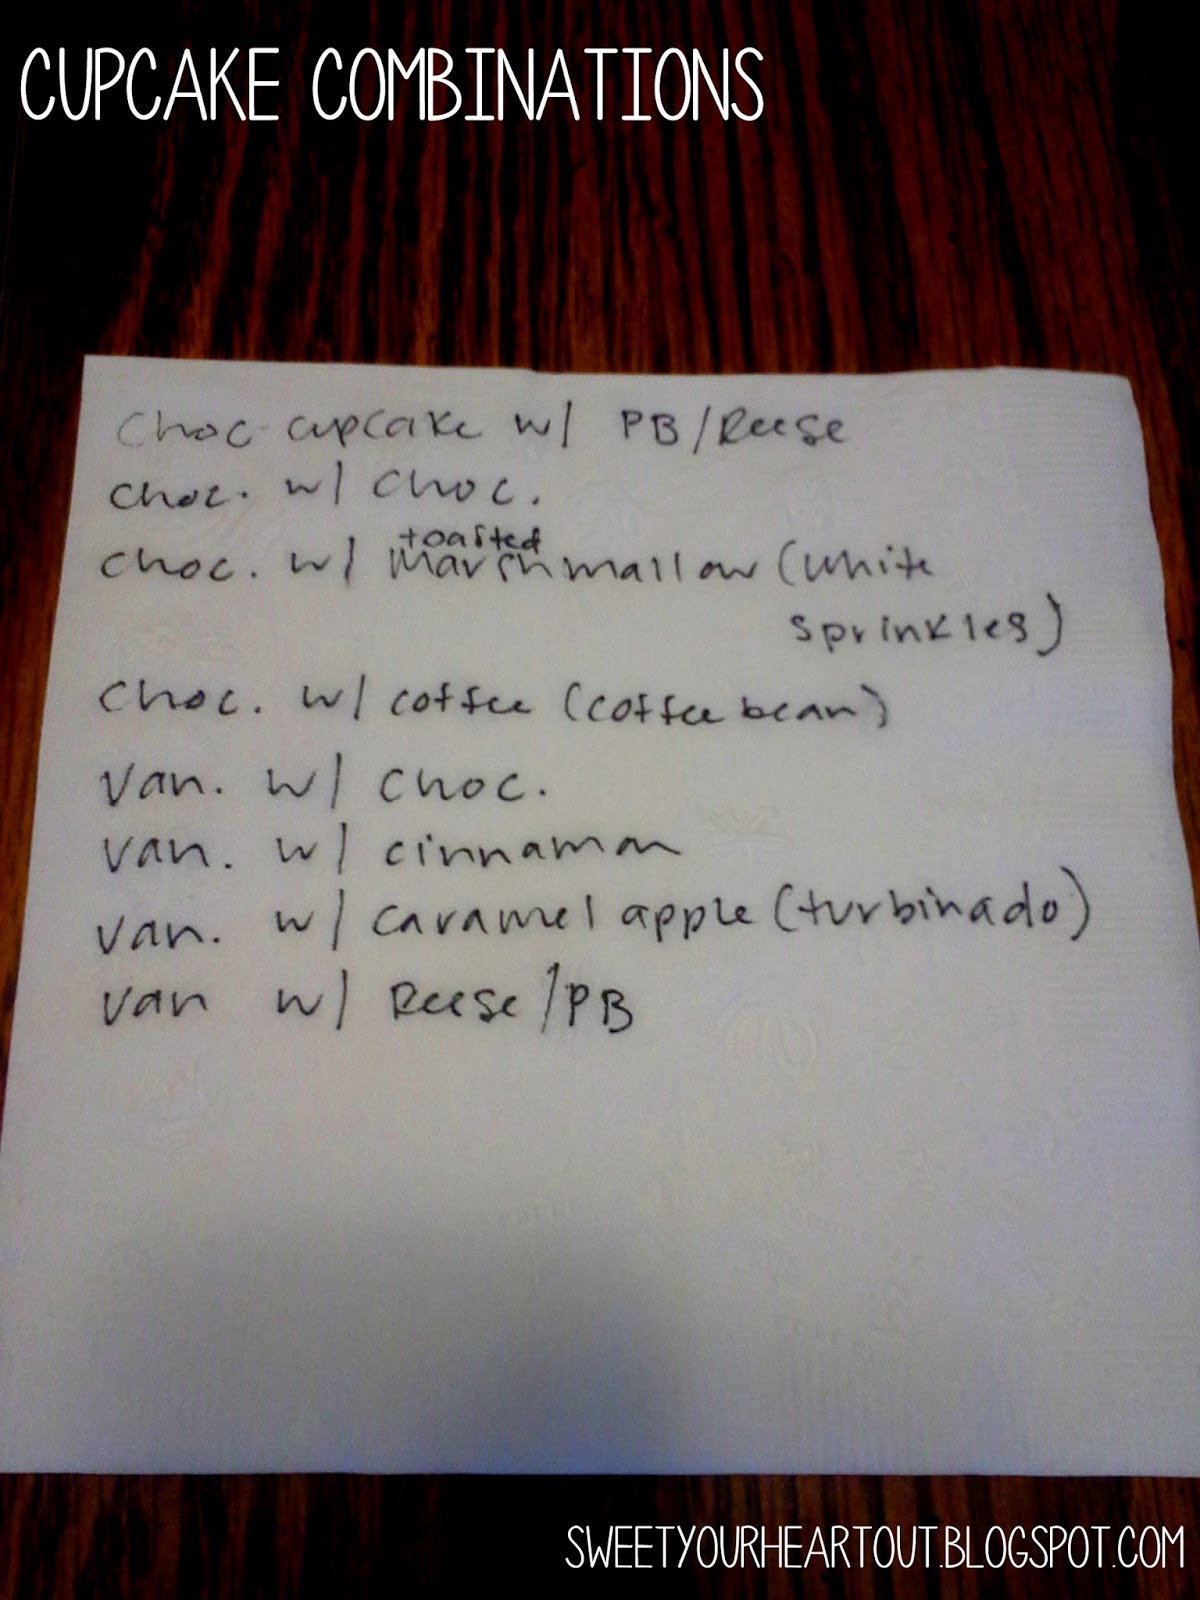 CUPCAKE COMBINATIONS
Choc cupcake w/ PB/Reese
choc. w/ choc.
toasted
choc. w/ marshmallow (white
sprinkles)
choc. w/ coffee (coffee bean)
Van. w/ choc.
van. w/ cinnamon
van. w/ caramel apple (turbinado)
van w/ Reese/PB
SWEETYOURHEARTOUT.BLOGSPOT.COM